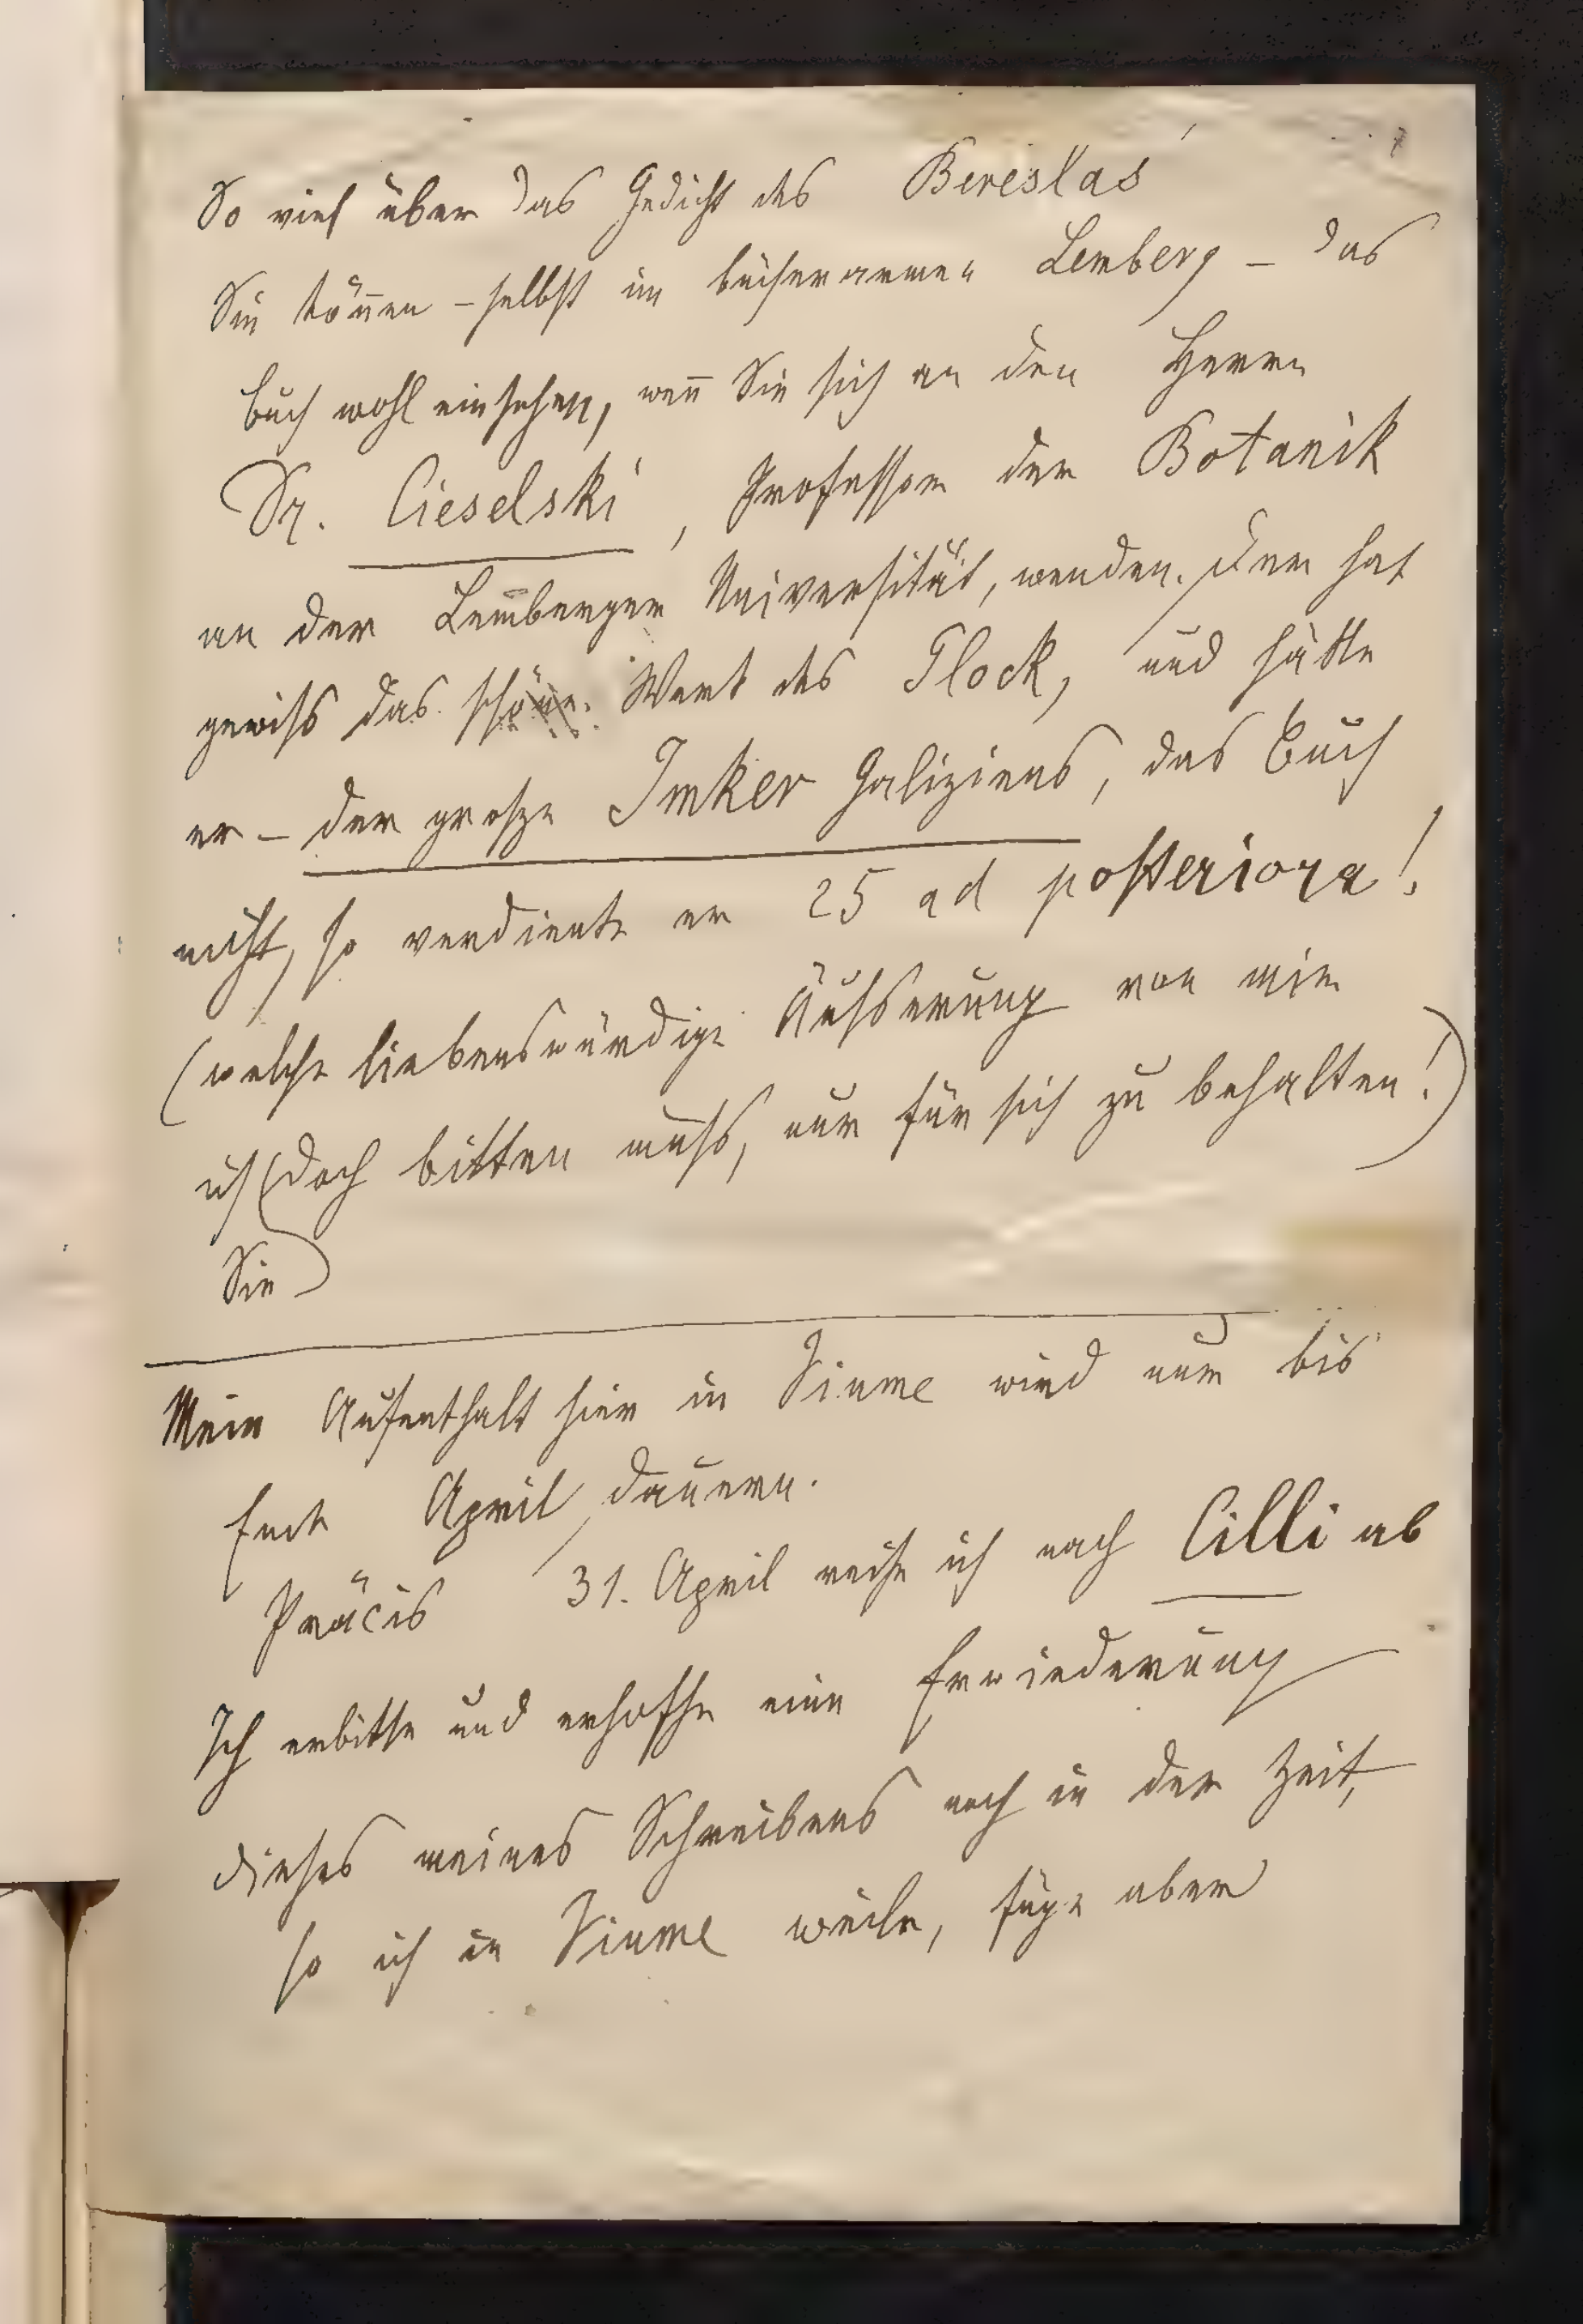 7
So viel über das Gedicht des Bereslas
Sie kön̄en – selbst im bücherarmen Lemberg – das
Buch wohl einsehen, wen̄ Sie sich an den Herrn
Dr. Cieselski, Professor der Botanik
an der Lemberger Universität, wenden. Der hat
gewiss das schöne Werk des Glock, und hätte
er – der große Imker Galiziens, das Buch
nicht, so verdiente er 25 ad posteriora!
(welche liebenswürdige Äusserung von mir
ich doch bitten muss, nur für sich zu behalten!)
Sie
Mein Aufenthalt hier in Fiume wird nur bis
Ende April dauern.
Präcis 31. April reise ich nach Cilli ab
Ich erbitte und erhoffe eine Erwiederung
dieses meines Schreibens noch in der Zeit,
so ich in Fiume weile, füge aber